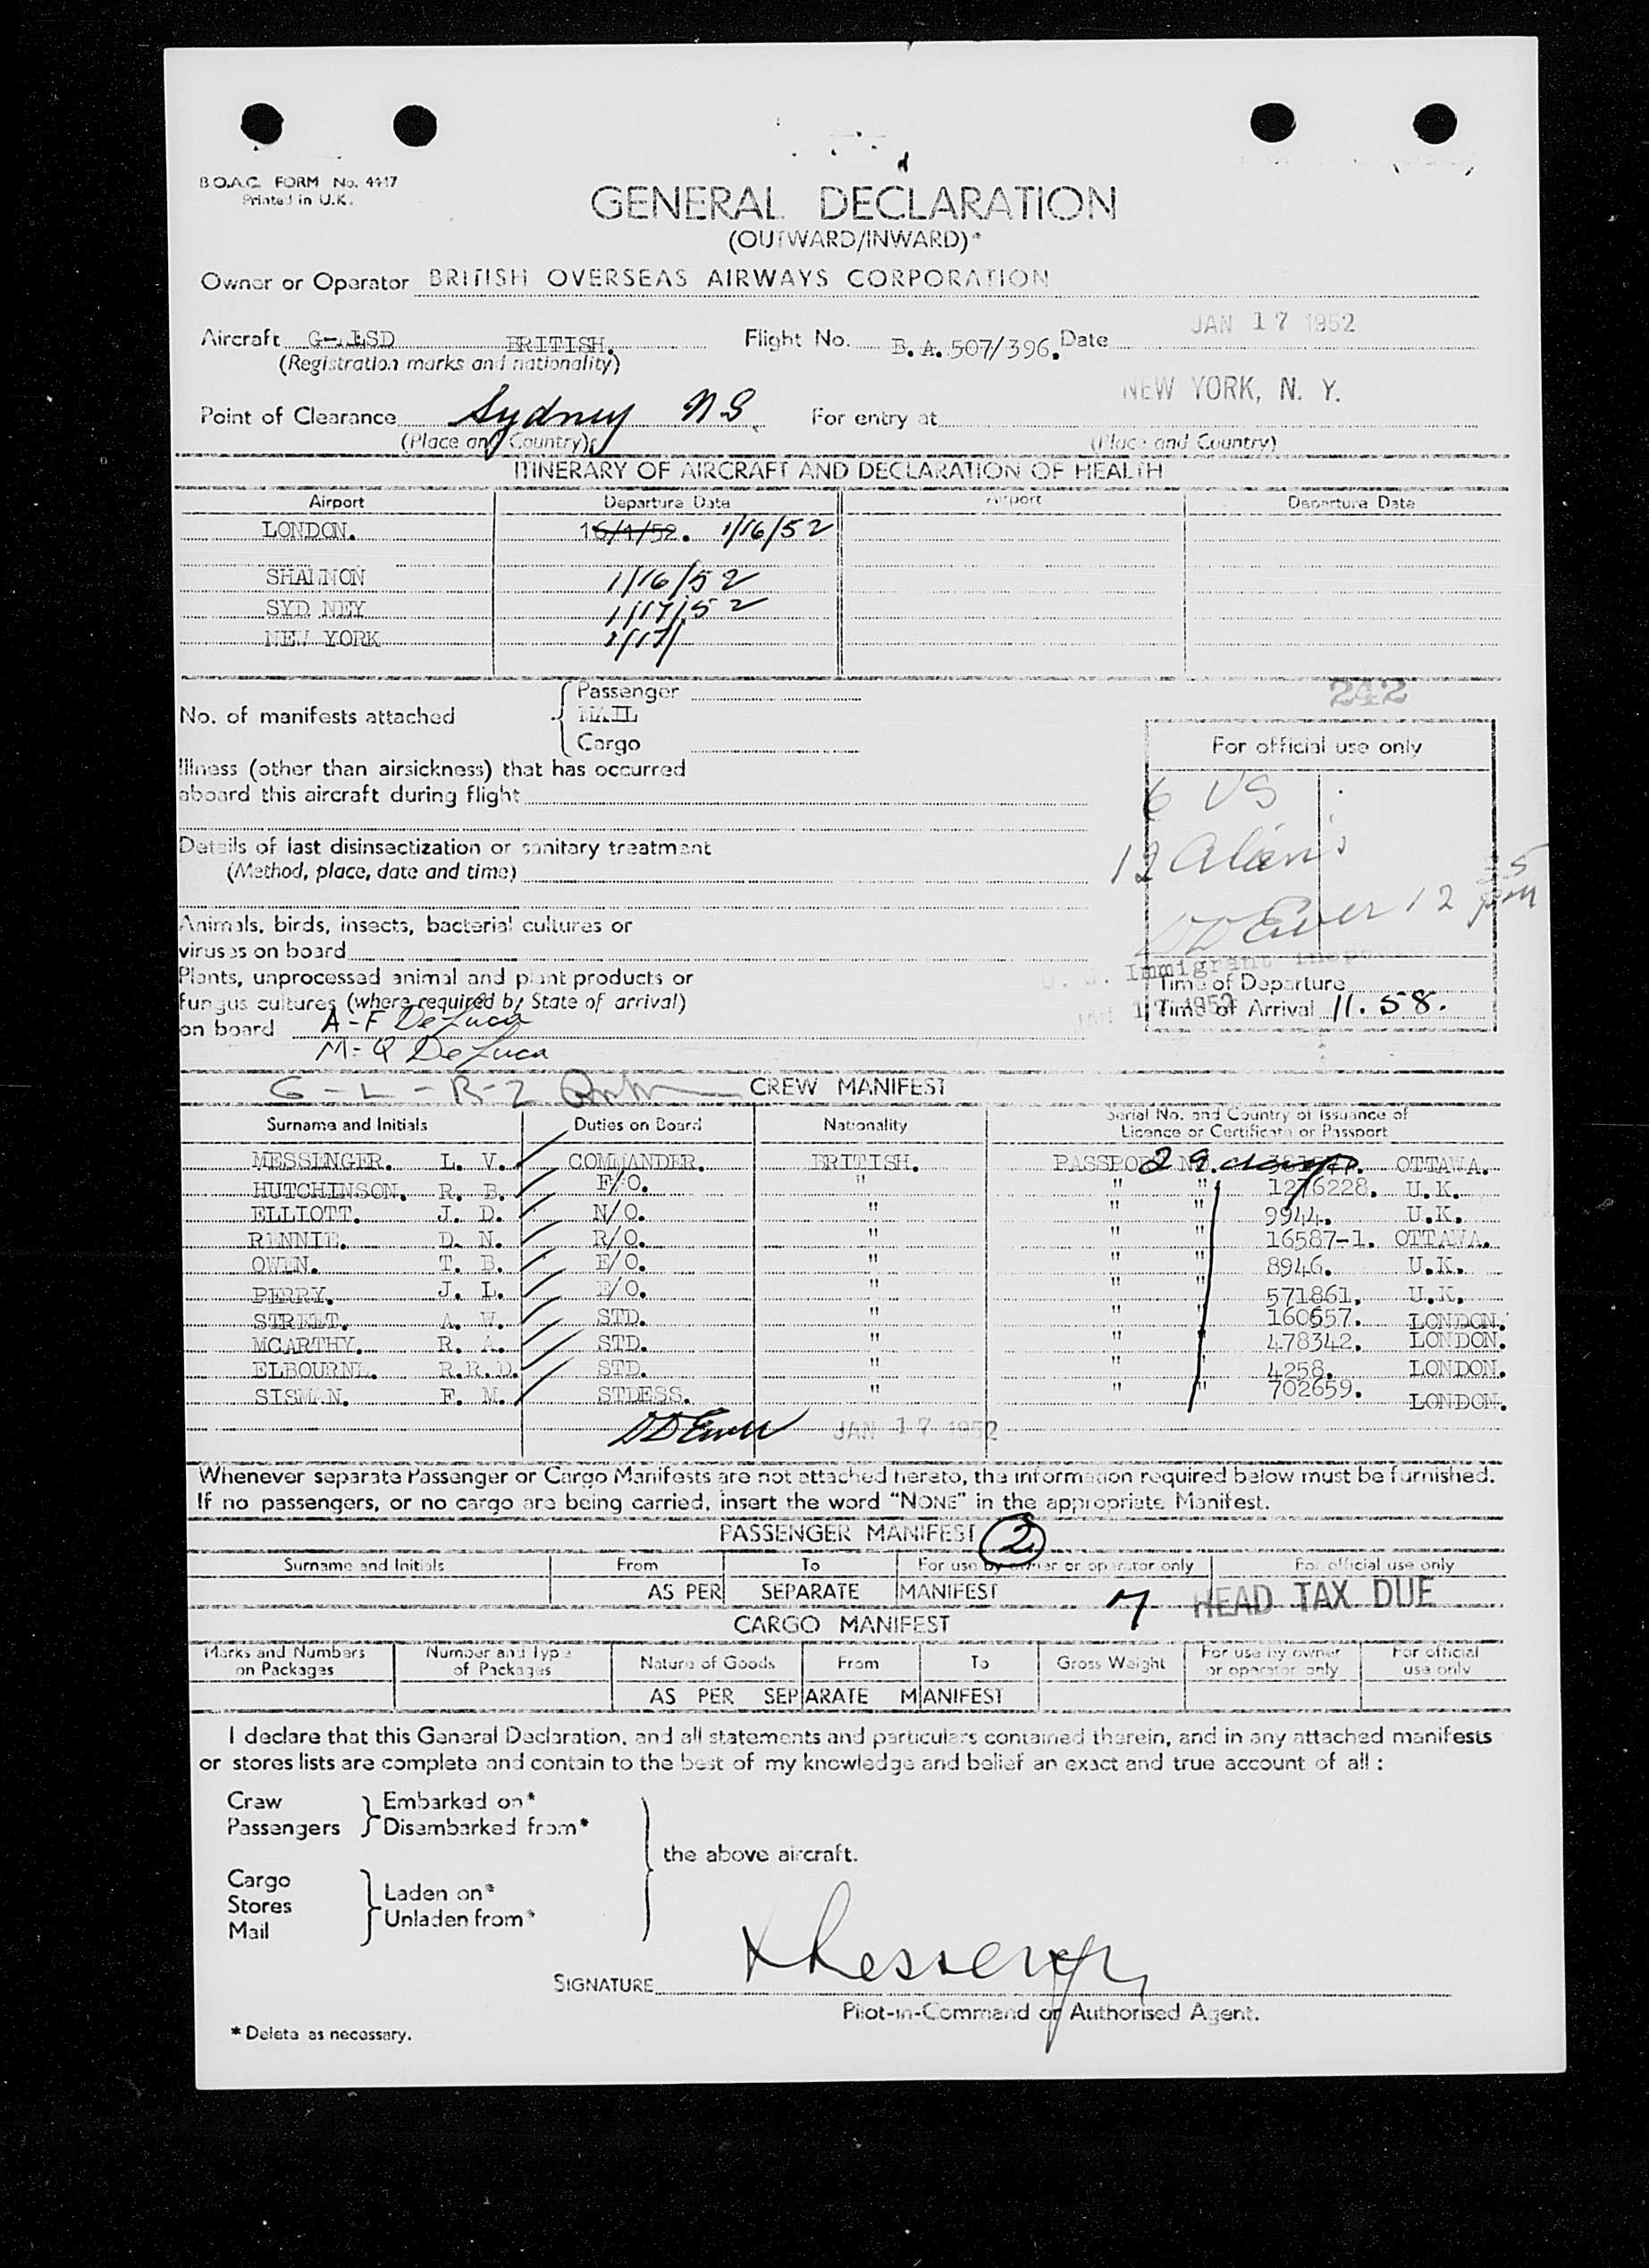 B.O.A.C. FORM No. 4417
Printed in U.K.
GENERAL DECLARATION
(OUTWARD/INWARD)*
Owner or Operator BRITISH OVERSEAS AIRWAYS CORPORATION
JAN 17 1952
Aircraft BRITISH. Flight No. B.A.507/396. Date
(Registration marks and nationality)
NEW YORK, N. Y.
Point of Clearance Sydney N S. For entry at
(Place and Country) (Place and Country)
ITINERARY OF AIRCRAFT AND DECLARATION OF HEALTH
Airport Departure Date Airport Departure Date
LONDON. 16/1/52. 1/16/52
SHANNON 1/16/52
SYD NEY 1/17/52
NEW YORK 1/17/
242
No. of manifests attached Passenger
MAIL
Cargo
For official use only
Illness (other than airsickness) that has occurred
aboard this aircraft during flight
6 US
Details of last disinsectization or sanitary treatment
(Method, place, date and time)
12 Aliens
DD Ewer 12 35 pm
Animals, birds, insects, bacterial cultures or
viruses on board
U. S. Immigrant Inspector
Plants, unprocessed animal and plant products or
fungus cultures (where required by State of arrival)
on board
Time of Departure
JAN 17 1952
Time of Arrival 11.58.
A-F DeLuca
M-Q DeLuca
G - L - R-Z
CREW MANIFEST
Surname and Initials Duties on Board Nationality Serial No. and Country of Issuance of
Licence or Certificate or Passport
MESSENGER. L. V. COMMANDER. BRITISH. PASSPORT NO. OTTAWA.
HUTCHINSON. R. B. F/O. " " " 1276228. U.K.
ELLIOTT. J. D. N/O. " " " 9944. U.K.
RENNIE. D. N. R/O. " " " 16587-1. OTTAWA.
OWEN. T. B. E/O. " " " 8946. U.K.
PERRY. J. L. E/O. " " " 571861. U.K.
STREET. A. W. STD. " " " 160657. LONDON.
MCARTHY. R. A. STD. " " " 478342. LONDON.
ELBOURNE. R.R.D. STD. " " " 4258. LONDON.
SISMAN. F. M. STDESS. " " " 702659. LONDON.
DD Ewer JAN 17 1952
Whenever separate Passenger or Cargo Manifests are not attached hereto, the information required below must be furnished.
If no passengers, or no cargo are being carried, insert the word “NONE” in the appropriate Manifest.
PASSENGER MANIFEST 2
Surname and Initials From To For use by owner or operator only For official use only
AS PER SEPARATE MANIFEST 7 HEAD TAX DUE
CARGO MANIFEST
Marks and Numbers on Packages Number and Type of Packages Nature of Goods From To Gross Weight For use by owner or operator only For official use only
AS PER SEPARATE MANIFEST
I declare that this General Declaration, and all statements and particulars contained therein, and in any attached manifests
or stores lists are complete and contain to the best of my knowledge and belief an exact and true account of all :
Crew Embarked on*
Passengers Disembarked from*
the above aircraft.
Cargo
Stores Laden on*
Mail Unladen from*
SIGNATURE Messenger
Pilot-in-Command or Authorised Agent.
* Delete as necessary.